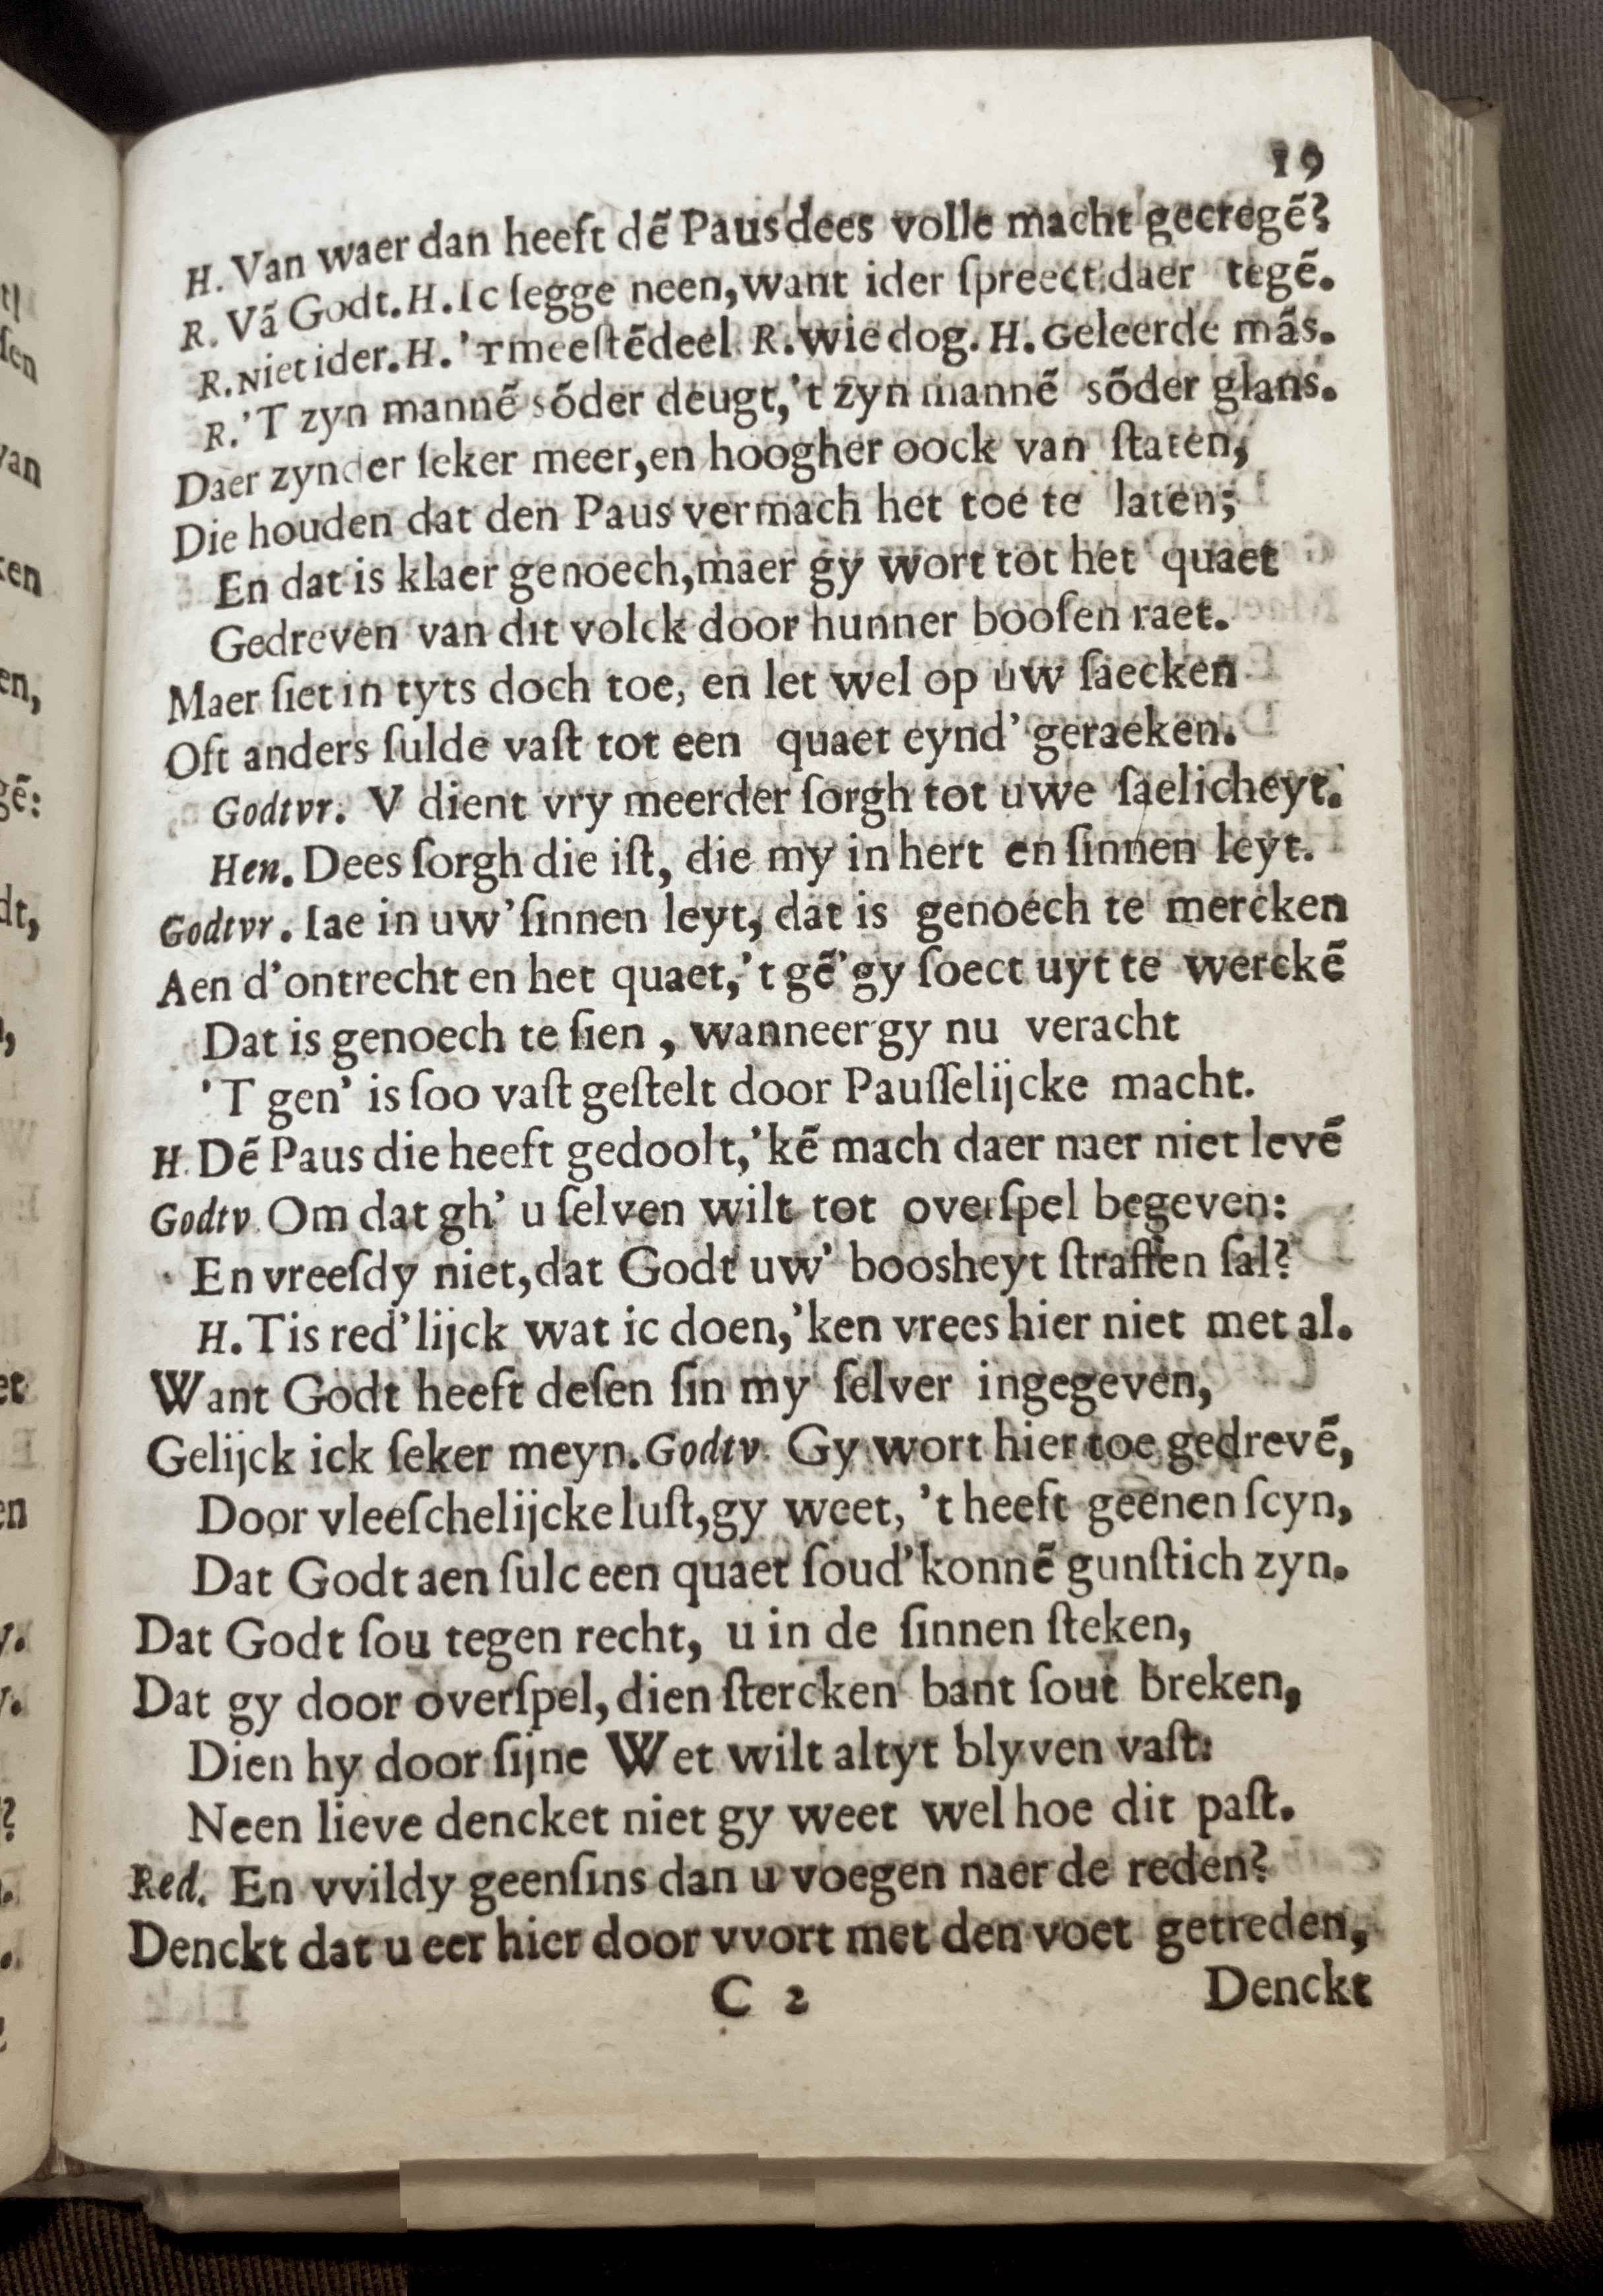 19
H. Van waer dan heeft dẽ Paus dees volle macht gecregẽ?
R. Vã Godt. H. Ic ſegge neen, want ider ſpreect daer tegẽ.
R. Niet ider. H. 'T meeſtẽdeel R. wie dog. H. Geleerde mãs.
R. 'T zyn mannẽ sõder deugt, 't zyn mannẽ sõder glans.
Daer zynder ſeker meer, en hoogher oock van ſtaten,
Die houden dat den Paus vermach het toe te laten;
En dat is klaer genoech, maer gy wort tot het quaet
Gedreven van dit volck door hunner booſen raet.
Maer ſiet in tyts doch toe, en let wel op uw ſaecken
Oft anders ſulde vaſt tot een quaet eynd' geraeken.
Godtvr. V dient vry meerder ſorgh tot uwe ſaelicheyt.
Hen. Dees ſorgh die iſt, die my in hert en ſinnen leyt.
Godtvr. Iae in uw' ſinnen leyt, dat is genoech te mercken
Aen d'ontrecht en het quaet, 't gẽ' gy ſoect uyt te werckẽ
Dat is genoech te ſien, wanneer gy nu veracht
'T gen' is ſoo vaſt geſtelt door Pauſſelijcke macht.
H. Dẽ Paus die heeft gedoolt, 'kẽ mach daer naer niet levẽ
Godtv. Om dat gh' u ſelven wilt tot overſpel begeven:
En vreeſdy niet, dat Godt uw' boosheyt ſtraffen ſal?
H. Tis red'lijck wat ic doen, 'ken vrees hier niet met al.
Want Godt heeft deſen ſin my ſelver ingegeven,
Gelijck ick ſeker meyn. Godtv. Gy wort hier toe gedrevẽ,
Door vleeſchelijcke luſt, gy weet, 't heeft geenen ſcyn,
Dat Godt aen ſulc een quaet ſoud' konnẽ gunſtich zyn.
Dat Godt ſou tegen recht, u in de ſinnen ſteken,
Dat gy door overſpel, dien ſtercken bant ſout breken,
Dien hy door ſijne Wet wilt altyt blyven vaſt:
Neen lieve dencket niet gy weet wel hoe dit paſt.
Red. En vvildy geenſins dan u voegen naer de reden?
Denckt dat u eer hier door vvort met den voet getreden,
C 2 Denckt